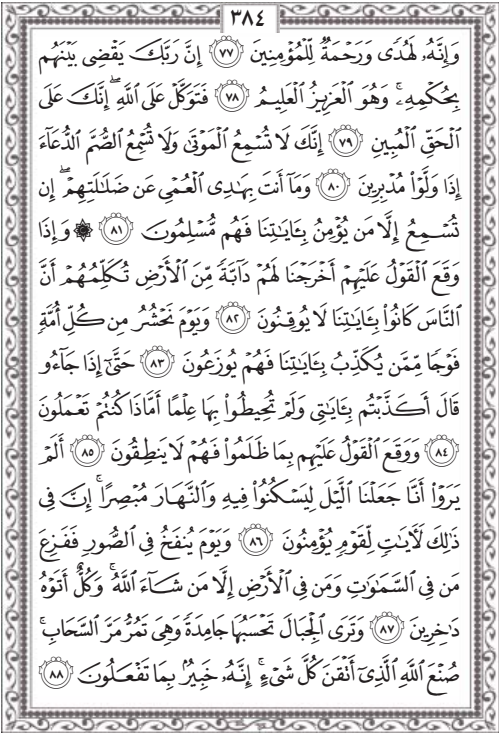 ٣٨٤
وَإِنَّهُۥ لَهُدٗى وَرَحۡمَةٞ لِّلۡمُؤۡمِنِينَ ٧٧ إِنَّ رَبَّكَ يَقۡضِي بَيۡنَهُم
بِحُكۡمِهِۦۚ وَهُوَ ٱلۡعَزِيزُ ٱلۡعَلِيمُ ٧٨ فَتَوَكَّلۡ عَلَى ٱللَّهِۖ إِنَّكَ عَلَى
ٱلۡحَقِّ ٱلۡمُبِينِ ٧٩ إِنَّكَ لَا تُسۡمِعُ ٱلۡمَوۡتَىٰ وَلَا تُسۡمِعُ ٱلصُّمَّ ٱلدُّعَآءَ
إِذَا وَلَّوۡاْ مُدۡبِرِينَ ٨٠ وَمَآ أَنتَ بِهَٰدِي ٱلۡعُمۡيِ عَن ضَلَٰلَتِهِمۡۖ إِن
تُسۡمِعُ إِلَّا مَن يُؤۡمِنُ بِـَٔايَٰتِنَا فَهُم مُّسۡلِمُونَ ٨١ ۞ وَإِذَا
وَقَعَ ٱلۡقَوۡلُ عَلَيۡهِمۡ أَخۡرَجۡنَا لَهُمۡ دَآبَّةٗ مِّنَ ٱلۡأَرۡضِ تُكَلِّمُهُمۡ أَنَّ
ٱلنَّاسَ كَانُواْ بِـَٔايَٰتِنَا لَا يُوقِنُونَ ٨٢ وَيَوۡمَ نَحۡشُرُ مِن كُلِّ أُمَّةٖ
فَوۡجٗا مِّمَّن يُكَذِّبُ بِـَٔايَٰتِنَا فَهُمۡ يُوزَعُونَ ٨٣ حَتَّىٰٓ إِذَا جَآءُو
قَالَ أَكَذَّبۡتُم بِـَٔايَٰتِي وَلَمۡ تُحِيطُواْ بِهَا عِلۡمًا أَمَّاذَا كُنتُمۡ تَعۡمَلُونَ
٨٤ وَوَقَعَ ٱلۡقَوۡلُ عَلَيۡهِم بِمَا ظَلَمُواْ فَهُمۡ لَا يَنطِقُونَ ٨٥ أَلَمۡ
يَرَوۡاْ أَنَّا جَعَلۡنَا ٱلَّيۡلَ لِيَسۡكُنُواْ فِيهِ وَٱلنَّهَارَ مُبۡصِرًاۚ إِنَّ فِي
ذَٰلِكَ لَأٓيَٰتٖ لِّقَوۡمٖ يُؤۡمِنُونَ ٨٦ وَيَوۡمَ يُنفَخُ فِي ٱلصُّورِ فَفَزِعَ
مَن فِي ٱلسَّمَٰوَٰتِ وَمَن فِي ٱلۡأَرۡضِ إِلَّا مَن شَآءَ ٱللَّهُۚ وَكُلٌّ أَتَوۡهُ
دَٰخِرِينَ ٨٧ وَتَرَى ٱلۡجِبَالَ تَحۡسَبُهَا جَامِدَةٗ وَهِيَ تَمُرُّ مَرَّ ٱلسَّحَابِۚ
صُنۡعَ ٱللَّهِ ٱلَّذِيٓ أَتۡقَنَ كُلَّ شَيۡءٍۚ إِنَّهُۥ خَبِيرُۢ بِمَا تَفۡعَلُونَ ٨٨